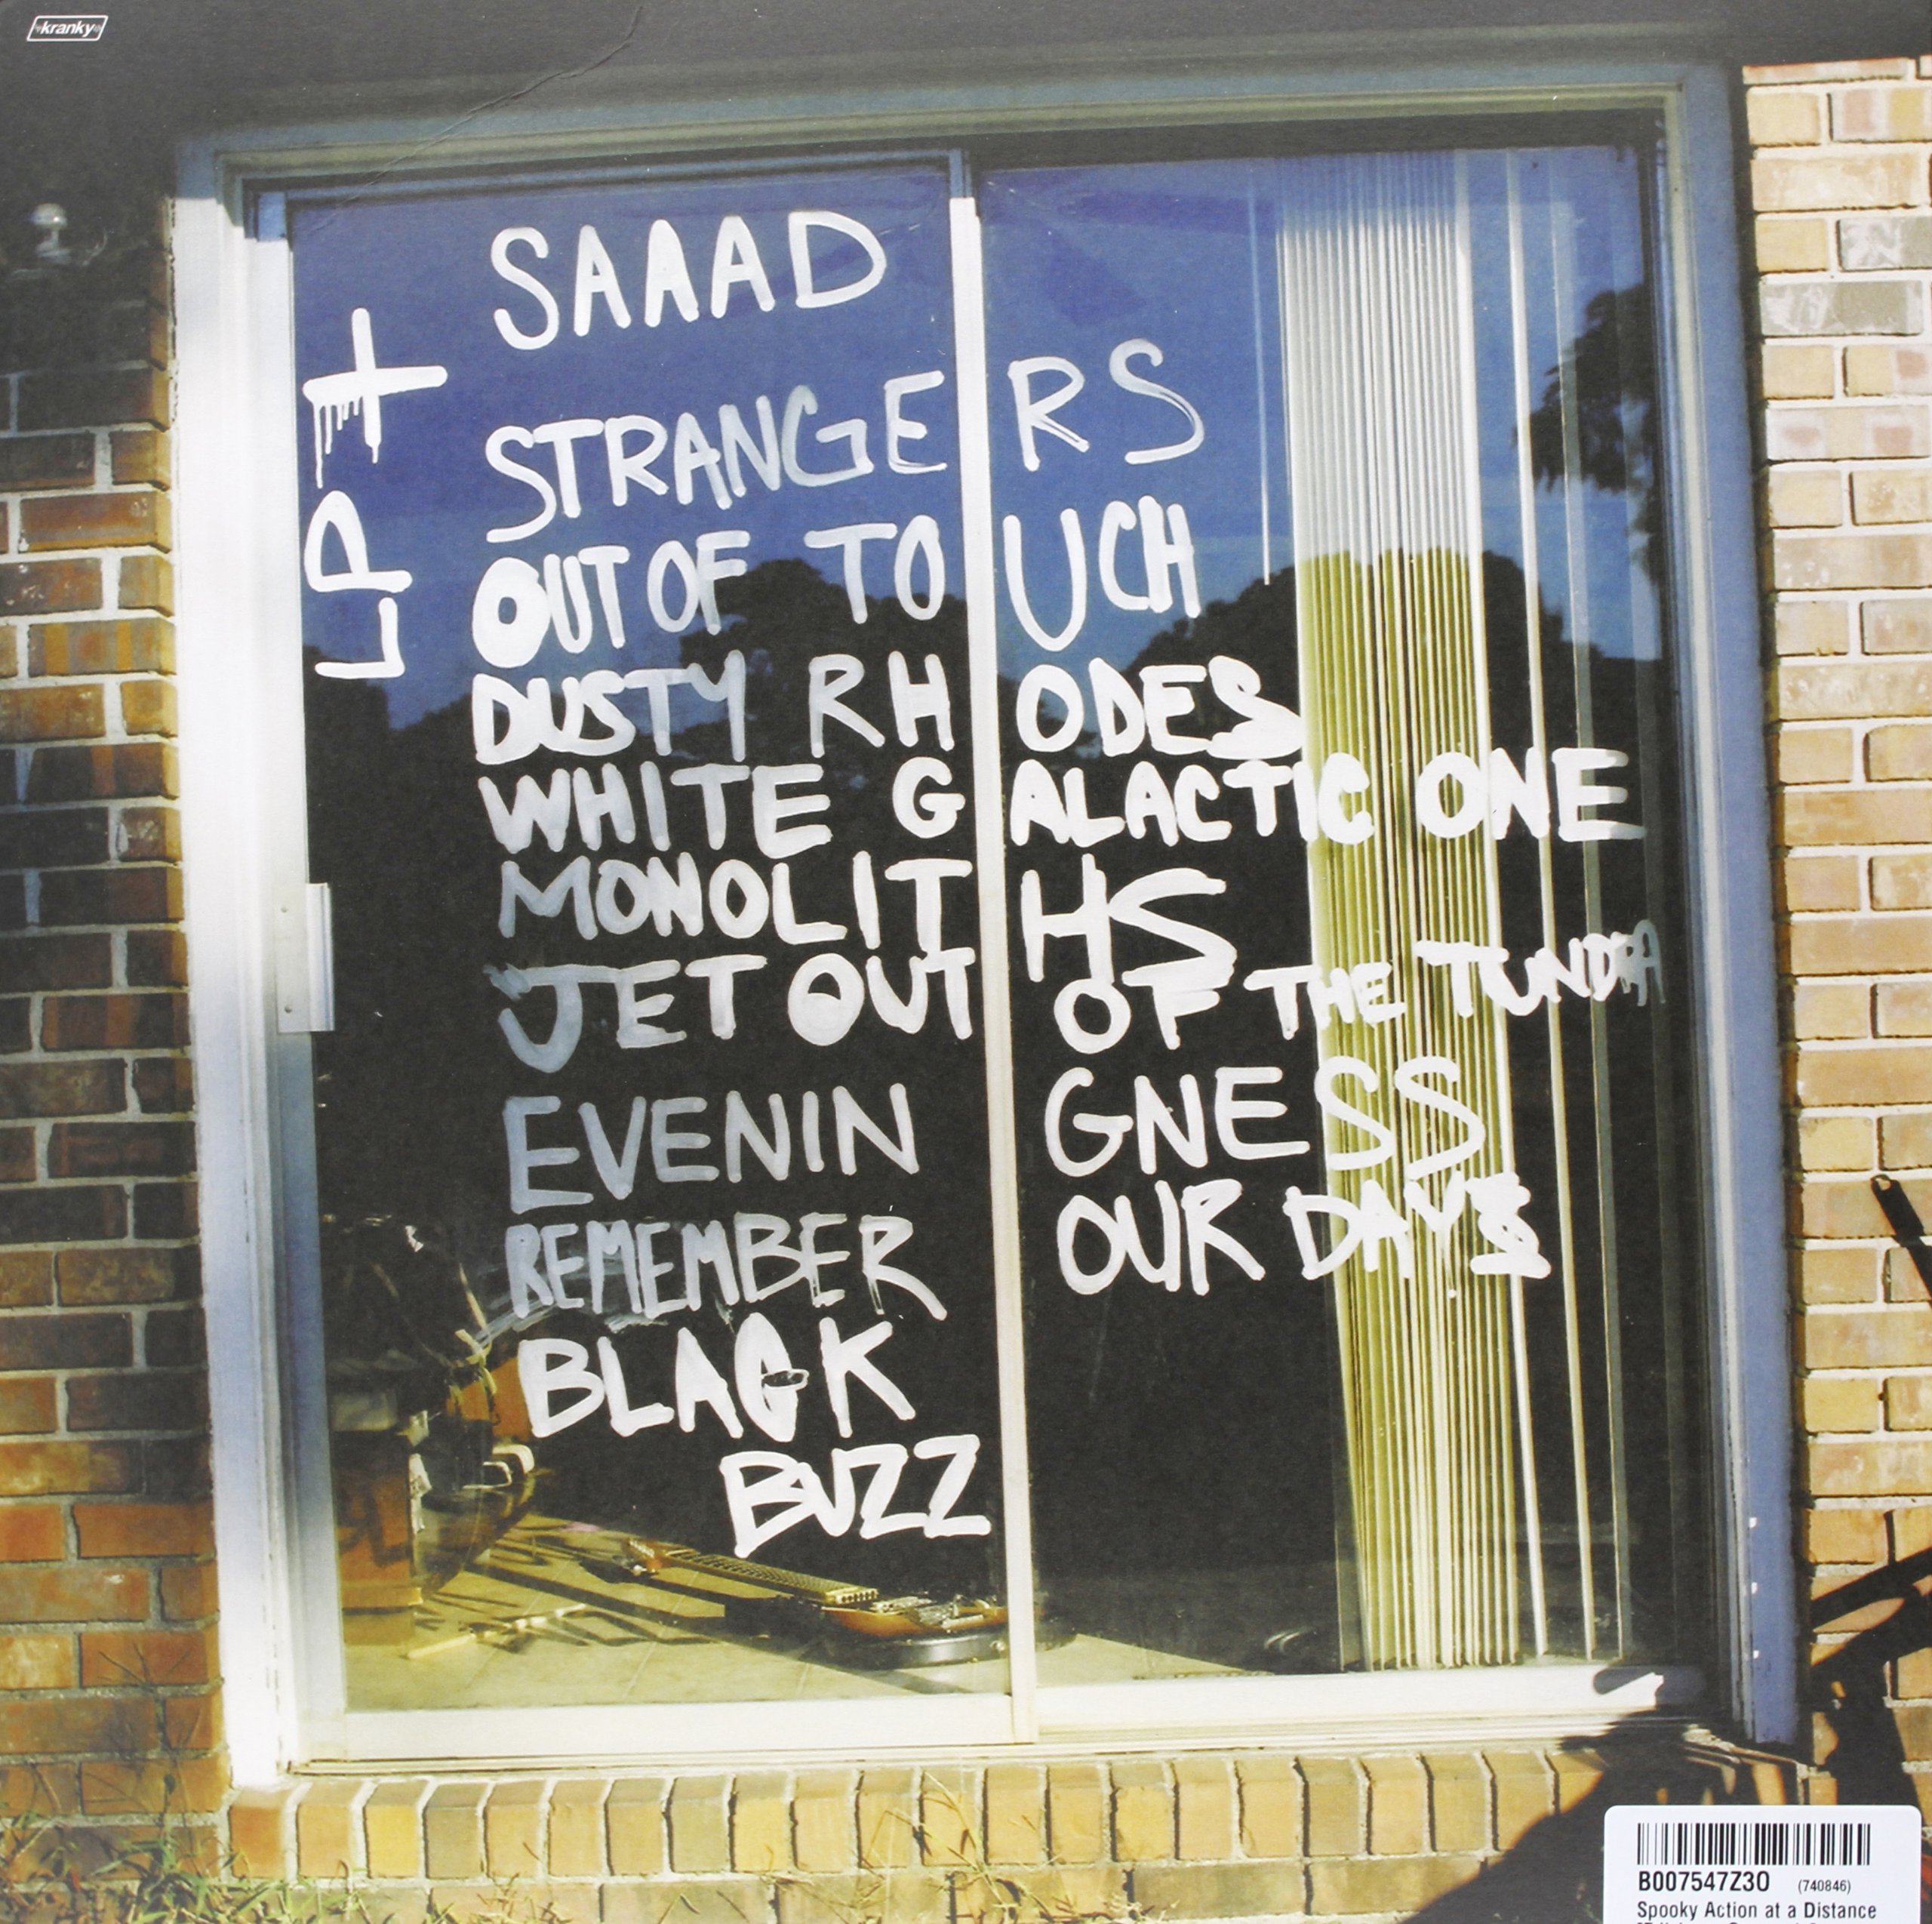 kranky
LP +
SAAAD
STRANGERS
OUT OF TOUCH
DUSTY RHODES
WHITE GALACTIC ONE
MONOLITHS
JET OUT OF THE TUNDRA
EVENINGNESS
REMEMBER OUR DAYS
BLACK
BUZZ
B007547Z3O (740846)
Spooky Action at a Distance